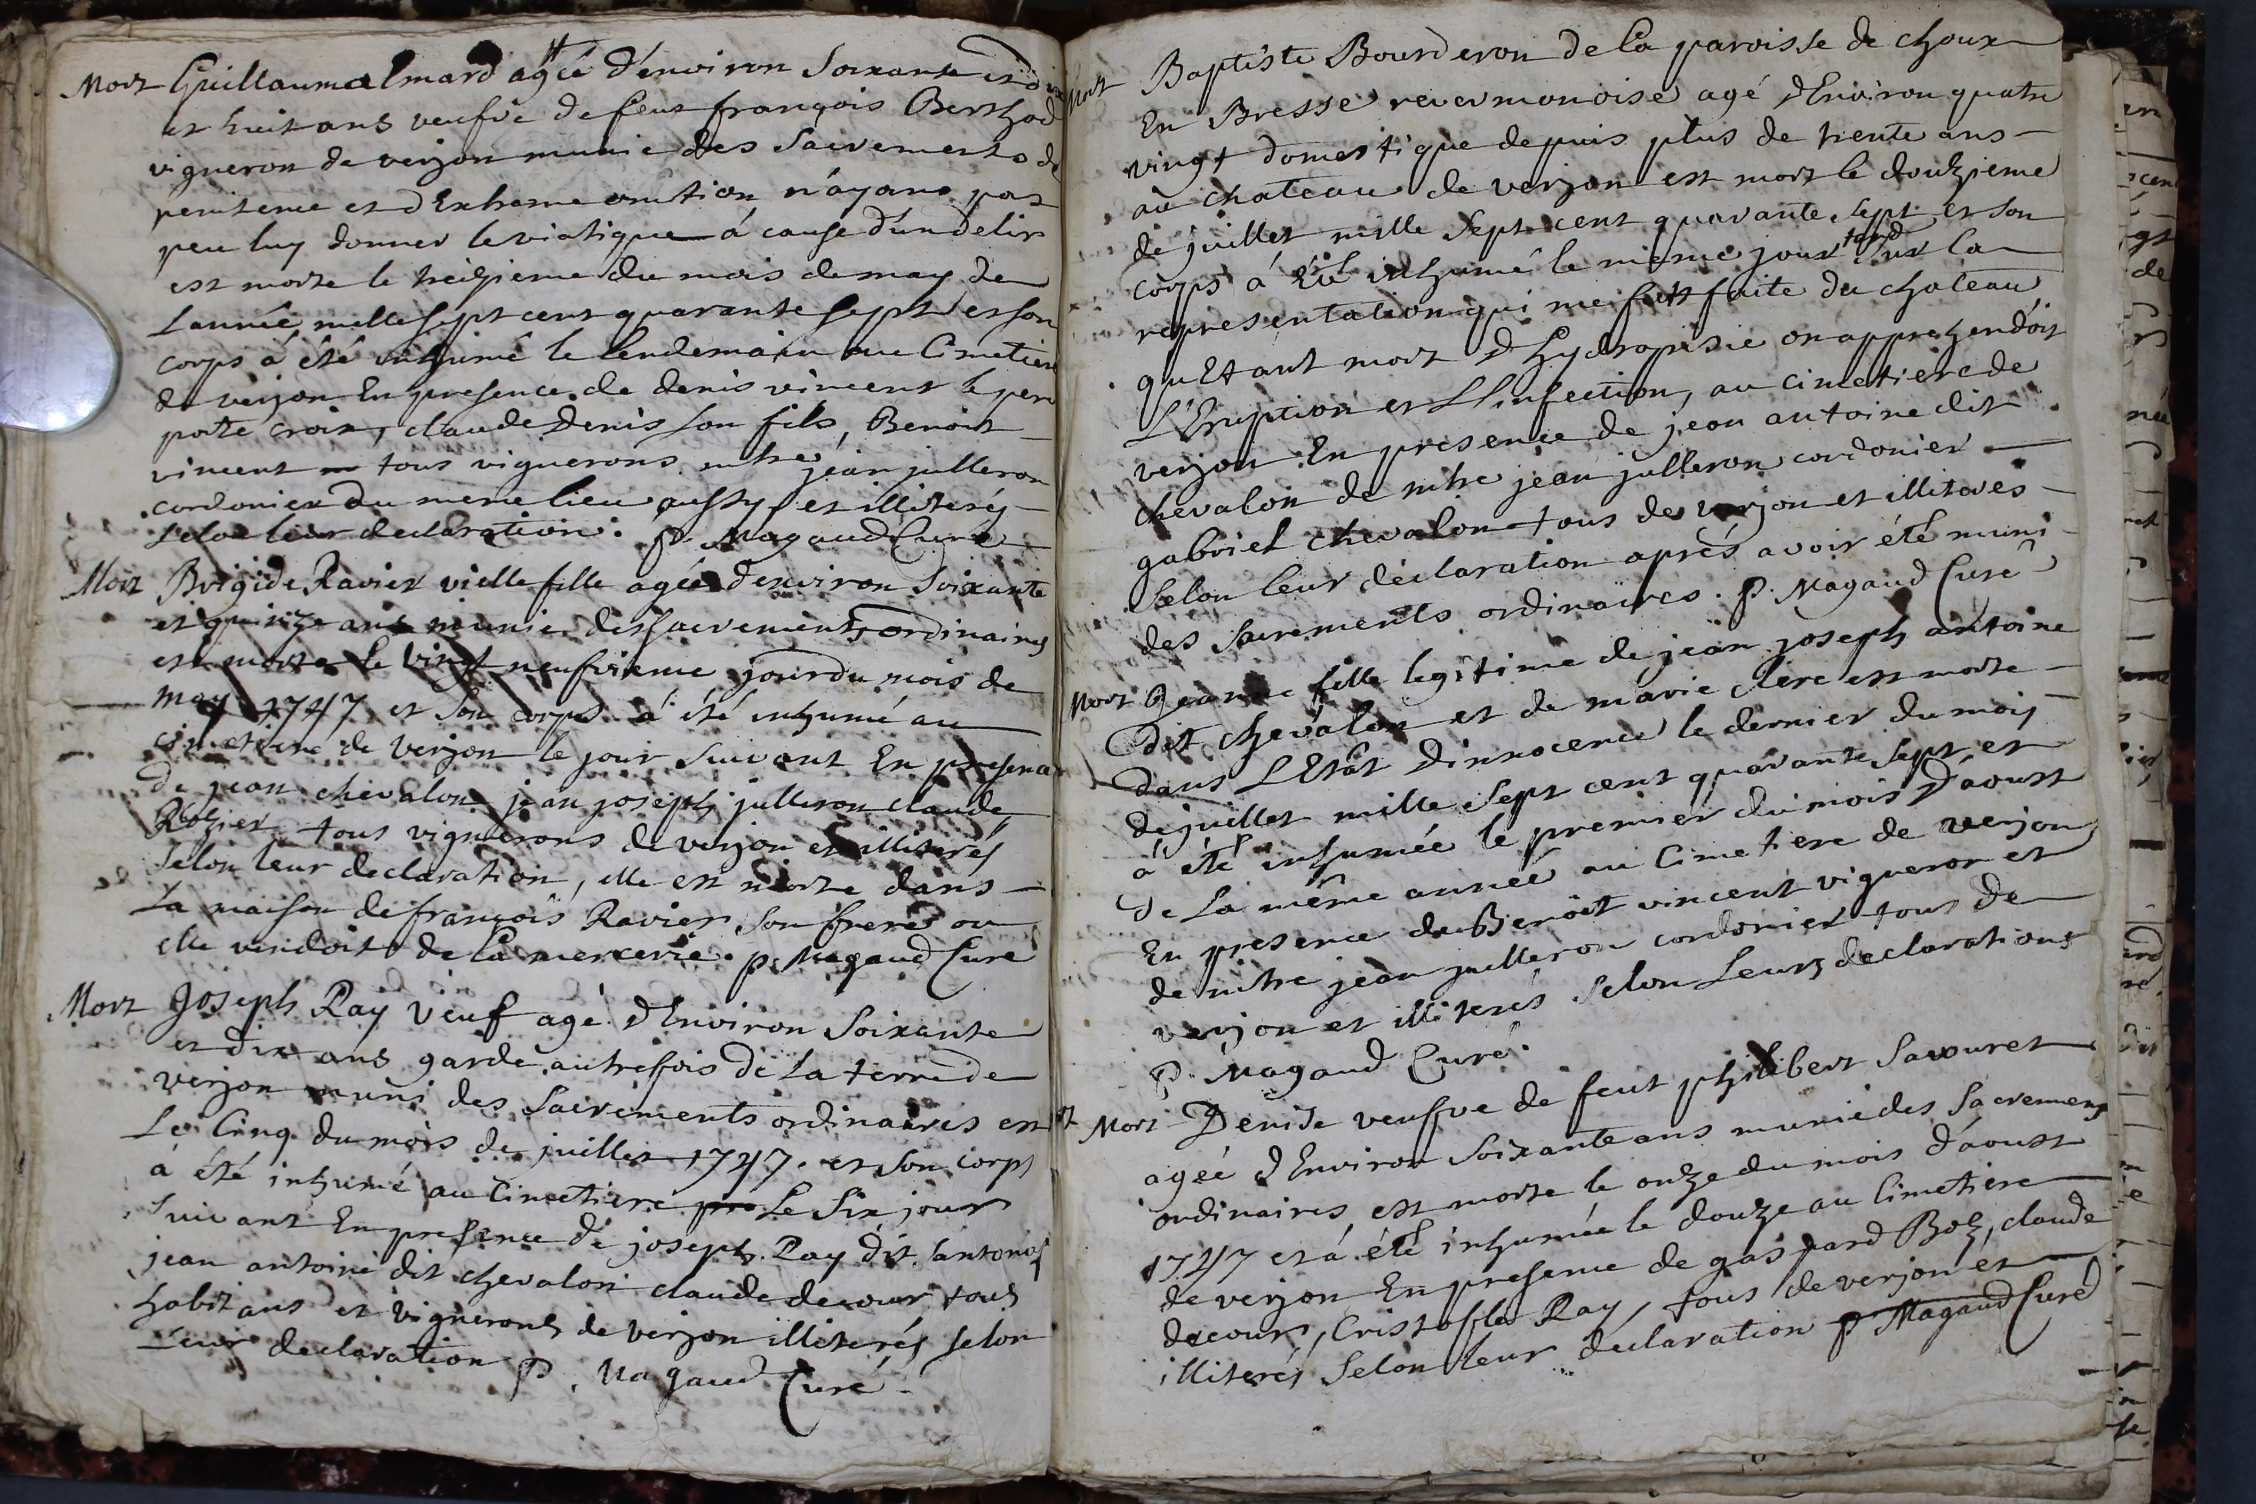 Mort Guillauma Emard agéé d'environ Soixante et dix
et huit ans veufve de feut françois Berthod
vigneron de verjon munie des Sacrements de
penitence et d Extreme onction n'ayant pas
peu luy donner le viatique á cause d'un delire
est morte le treizieme du mois de may de
L'année mille sept cent quarante sept et son
corps á été inhumé le lendemain au Cimetiere
de verjon En presence de denis vincent le pere
porte croix, claude Denis son fils, Benoist
vincent tous vignerons mtre jean julleron
cordonier du meme lieu aussy et illiterés
selon leur declaration. P. Magaud Curé
Mort Brigide Ravier vielle fille agée d'environ Soixante
et quinze ans munie des sacrements ordinaires
est morte le vingt neufvieme jour du mois de
may 1747 et son corps á été inhumé au
cimetiere de verjon le jour suivant En presence
de jean chevalon jean joseph julleron claude
Rozier tous vignerons de verjon et illiterés
selon leur declaration, elle est morte dans
La maison de françois Ravier son frere ou
elle vendoit de la mercerie. P. Magaud Curé
Mort Joseph Ray veuf agé d'Environ Soixante
et dix ans garde autreffois de la terre de
verjon muni des Sacrements ordinaires est mort
Le Cinq du mois de juillet 1747. et son corps
á été inhumé au Cimetiere Le Six jour
suivant En presence de joseph Ray dit
jean antoine dit chevalon claude decour tous
habitans et vignerons de verjon illiterés selon
Leur declaration P. Magaud Curé.
Mort Baptiste Bourderon de la paroisse de choux
En Bresse revermonoise agé d'Environ quatre
vingt domestique depuis plus de trente ans
au chateau de verjon est mort le douzieme
de juillet mille sept cent quarante sept et son
corps á été inhumé le meme jour tard sur la
representation qui me fut faite du chateau
qu'Etant mort d'hydropisie on apprehendoit
L'Eruption et L'infection, au cimetiere de
verjon En presence de jean antoine dit
chevalon de mtre jean julleron cordonier
gabriel chevalon tous de verjon et illiteres
selon leur declaration aprés avoir été muni
des sacrements ordinaires. P. Magaud Curé
Mort Jeanne fille legitime de jean joseph antoine
dit chevalon et de marie clerc est morte
dans L'Etat d'innocence le dernier du mois
de juillet mille sept cent quarante sept et
á été inhumée le premier du mois d'aoust
de la même année au Cimetiere de verjon
En presence de Benoit vincent vigneron et
de mtre jean julleron cordonier tous de
verjon et illiterés selon Leurs declarations
P. Magaud Curé.
Mort Denise veufve de feut philibert Savouret
agéé d'Environ Soixante ans munie des Sacremens
ordinaires est morte le onze du mois d'aoust
1747 et á été inhumée le douze au Cimetiere
de verjon En presence de gaspard Boz, claude
decour, Cristofle Ray, tous de verjon et
illiterés selon leur declaration P Magaud Curé